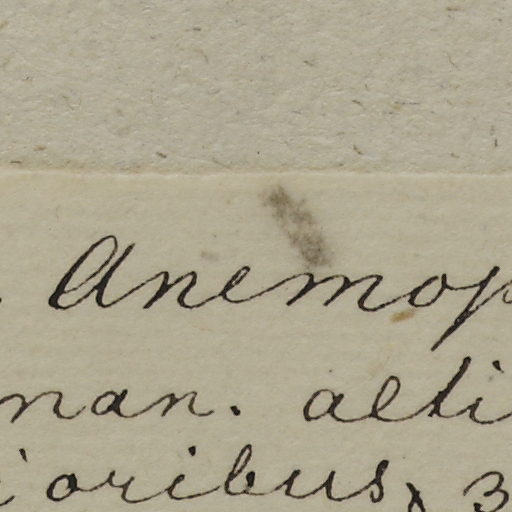 . Anemop
man. alti
ioribus, 3